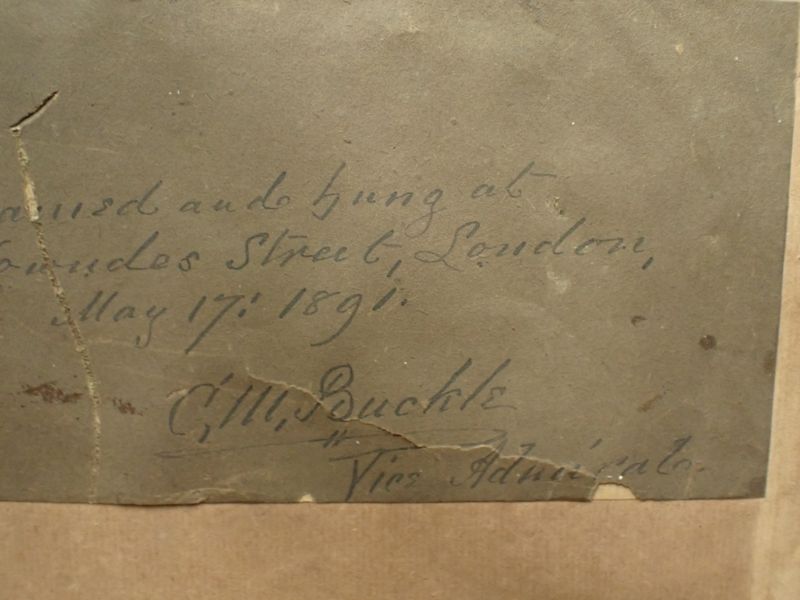 amed and hung at
owndes Street, London,
May 17: 1891.
C, M, Buckle
Vice Admiral.